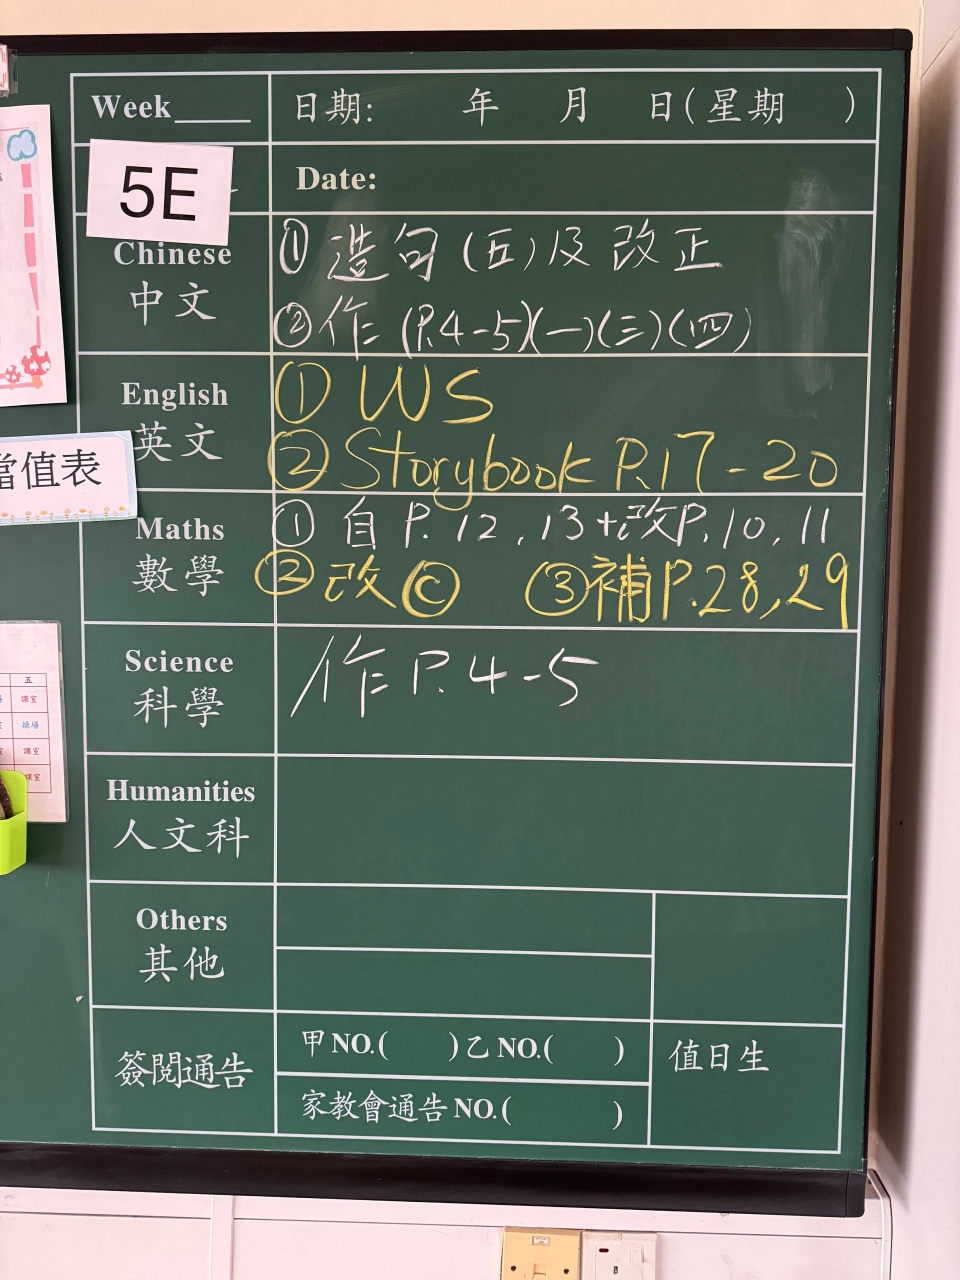 Week
日期: 年 月 日(星期 )
5E
Date:
Chinese
中文
① 造句(五)及改正
② 作 (P.4-5)(一)(三)(四)
English
英文
① WS
② Storybook P.17-20
當值表
Maths
數學
① 自 P.12,13+改P.10,11
② 改 © ③補P.28,29
Science
科學
作 P.4-5
五
課室
操場
課室
課室
Humanities
人文科
Others
其他
簽閱通告
甲NO.( )乙NO.( )
家教會通告NO.( )
值日生